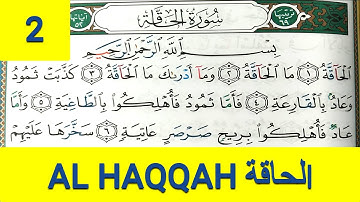 2
آياتها ٥٢
سُورَةُ الْحَاقَّةِ
ترتيبها ٦٩
بِسْمِ اللَّهِ الرَّحْمَٰنِ الرَّحِيمِ
الْحَاقَّةُ ١ مَا الْحَاقَّةُ ٢ وَمَا أَدْرَىٰكَ مَا الْحَاقَّةُ ٣ كَذَّبَتْ ثَمُودُ
وَعَادٌ بِالْقَارِعَةِ ٤ فَأَمَّا ثَمُودُ فَأُهْلِكُوا بِالطَّاغِيَةِ ٥ وَأَمَّا
عَادٌ فَأُهْلِكُوا بِرِيحٍ صَرْصَرٍ عَاتِيَةٍ ٦ سَخَّرَهَا عَلَيْهِمْ
AL HAQQAH الحاقة